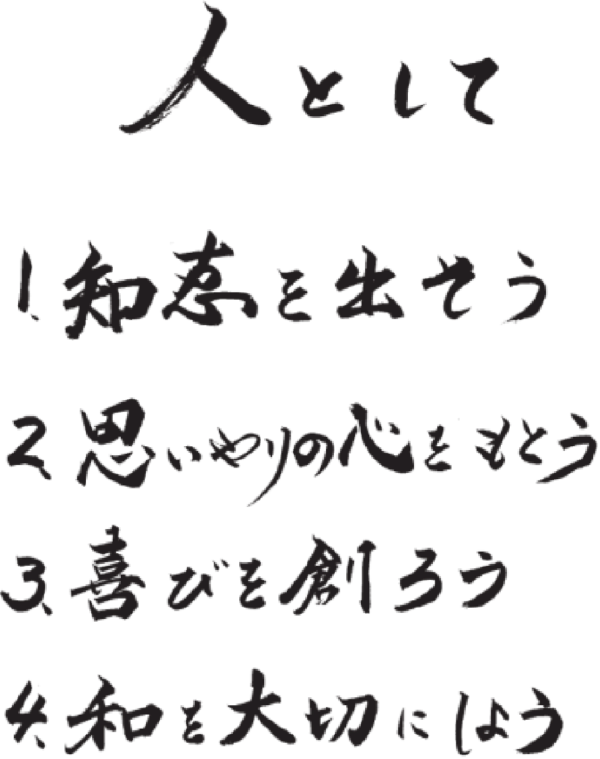 人として
1.知恵を出そう
2.思いやりの心をもとう
3.喜びを創ろう
4.和を大切にしよう